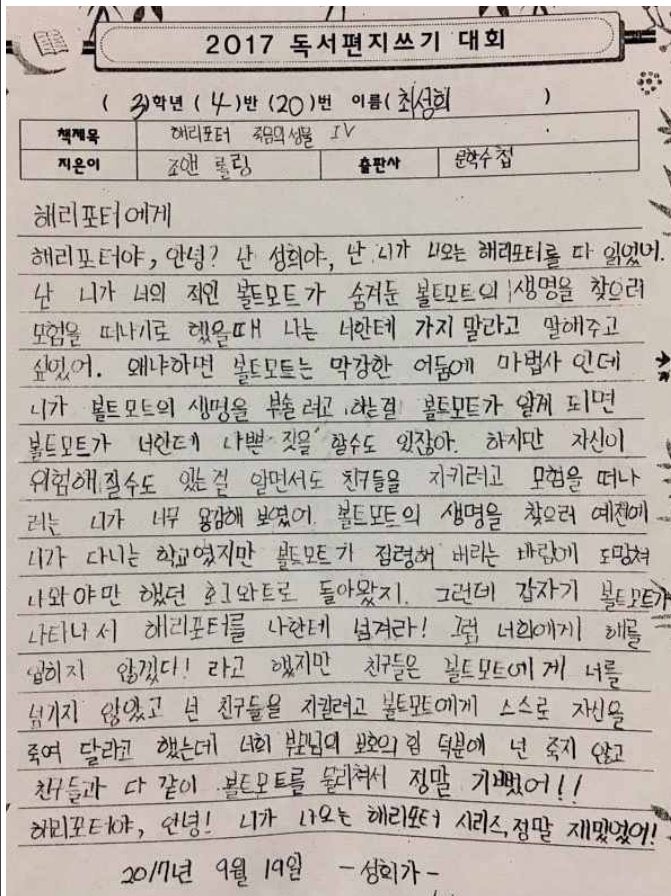 2017 독서편지쓰기 대회
( 3)학년 ( 4 )반 (20)번 이름( 최성희 )
책제목 해리포터 죽음의성물 IV
지은이 조앤 롤링 출판사 문학수첩
해리포터에게
해리포터야, 안녕? 난 성희야, 난 니가 나오는 해리포터를 다 읽었어.
난 니가 너의 적인 볼트모트가 숨겨둔 볼트모트의 생명을 찾으러
모험을 떠나기로 했을때 나는 너한테 가지 말라고 말해주고
싶었어. 왜냐하면 볼트모트는 막강한 어둠에 마법사 인데
니가 볼트모트의 생명을 부술려고 하는걸 볼트모트가 알게 되면
볼트모트가 너한테 나쁜 짓을 할수도 있잖아. 하지만 자신이
위험해 질수도 있는걸 알면서도 친구들을 지키려고 모험을 떠나
려는 니가 너무 용감해 보였어. 볼트모트의 생명을 찾으러 예전에
니가 다니는 학교였지만 볼트모트가 점령해 버리는 바람에 도망쳐
나와야만 했던 호그와트로 돌아왔지. 그런데 갑자기 볼트모트가
나타나서 해리포터를 나한테 넘겨라! 그럼 너희에게 해를
입히지 않겠다! 라고 했지만 친구들은 볼트모트에게 너를
넘기지 않았고 넌 친구들을 지킬려고 볼트모트에게 스스로 자신을
죽여 달라고 했는데 너희 부모님의 보호의 힘 덕분에 넌 죽지 않고
친구들과 다 같이 볼트모트를 물리쳐서 정말 기뻤어!!
해리포터야, 안녕! 니가 나오는 해리포터 시리즈, 정말 재밌었어!
2017년 9월 19일 -성희가-